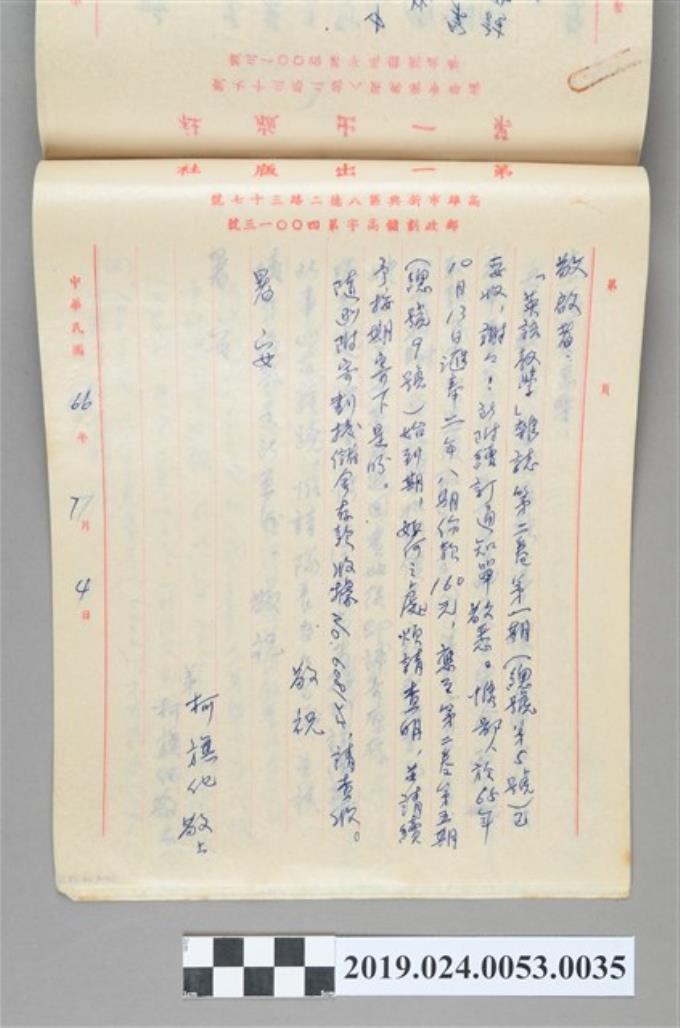 第一出版社
高雄市新興區八德二路三十七號
郵政劃儲高字第四〇〇一三號
第 頁
敬啟者：
「英語教學」雜誌第二卷第一期（總號第5號）已
妥收，謝々！所附續訂通知單敬悉。惟鄙人於65年
10月13日滙奉二年八期份款160元，應至第二卷第五期
（總號9號）始到期，如何之處煩請查明，並請續
予按期寄下是盼。
隨函附寄劃撥儲金存款收據，請查收。
敬祝
暑安
弟 柯旗化 敬上
中華民國 66年 7月 4日
2019.024.0053.0035